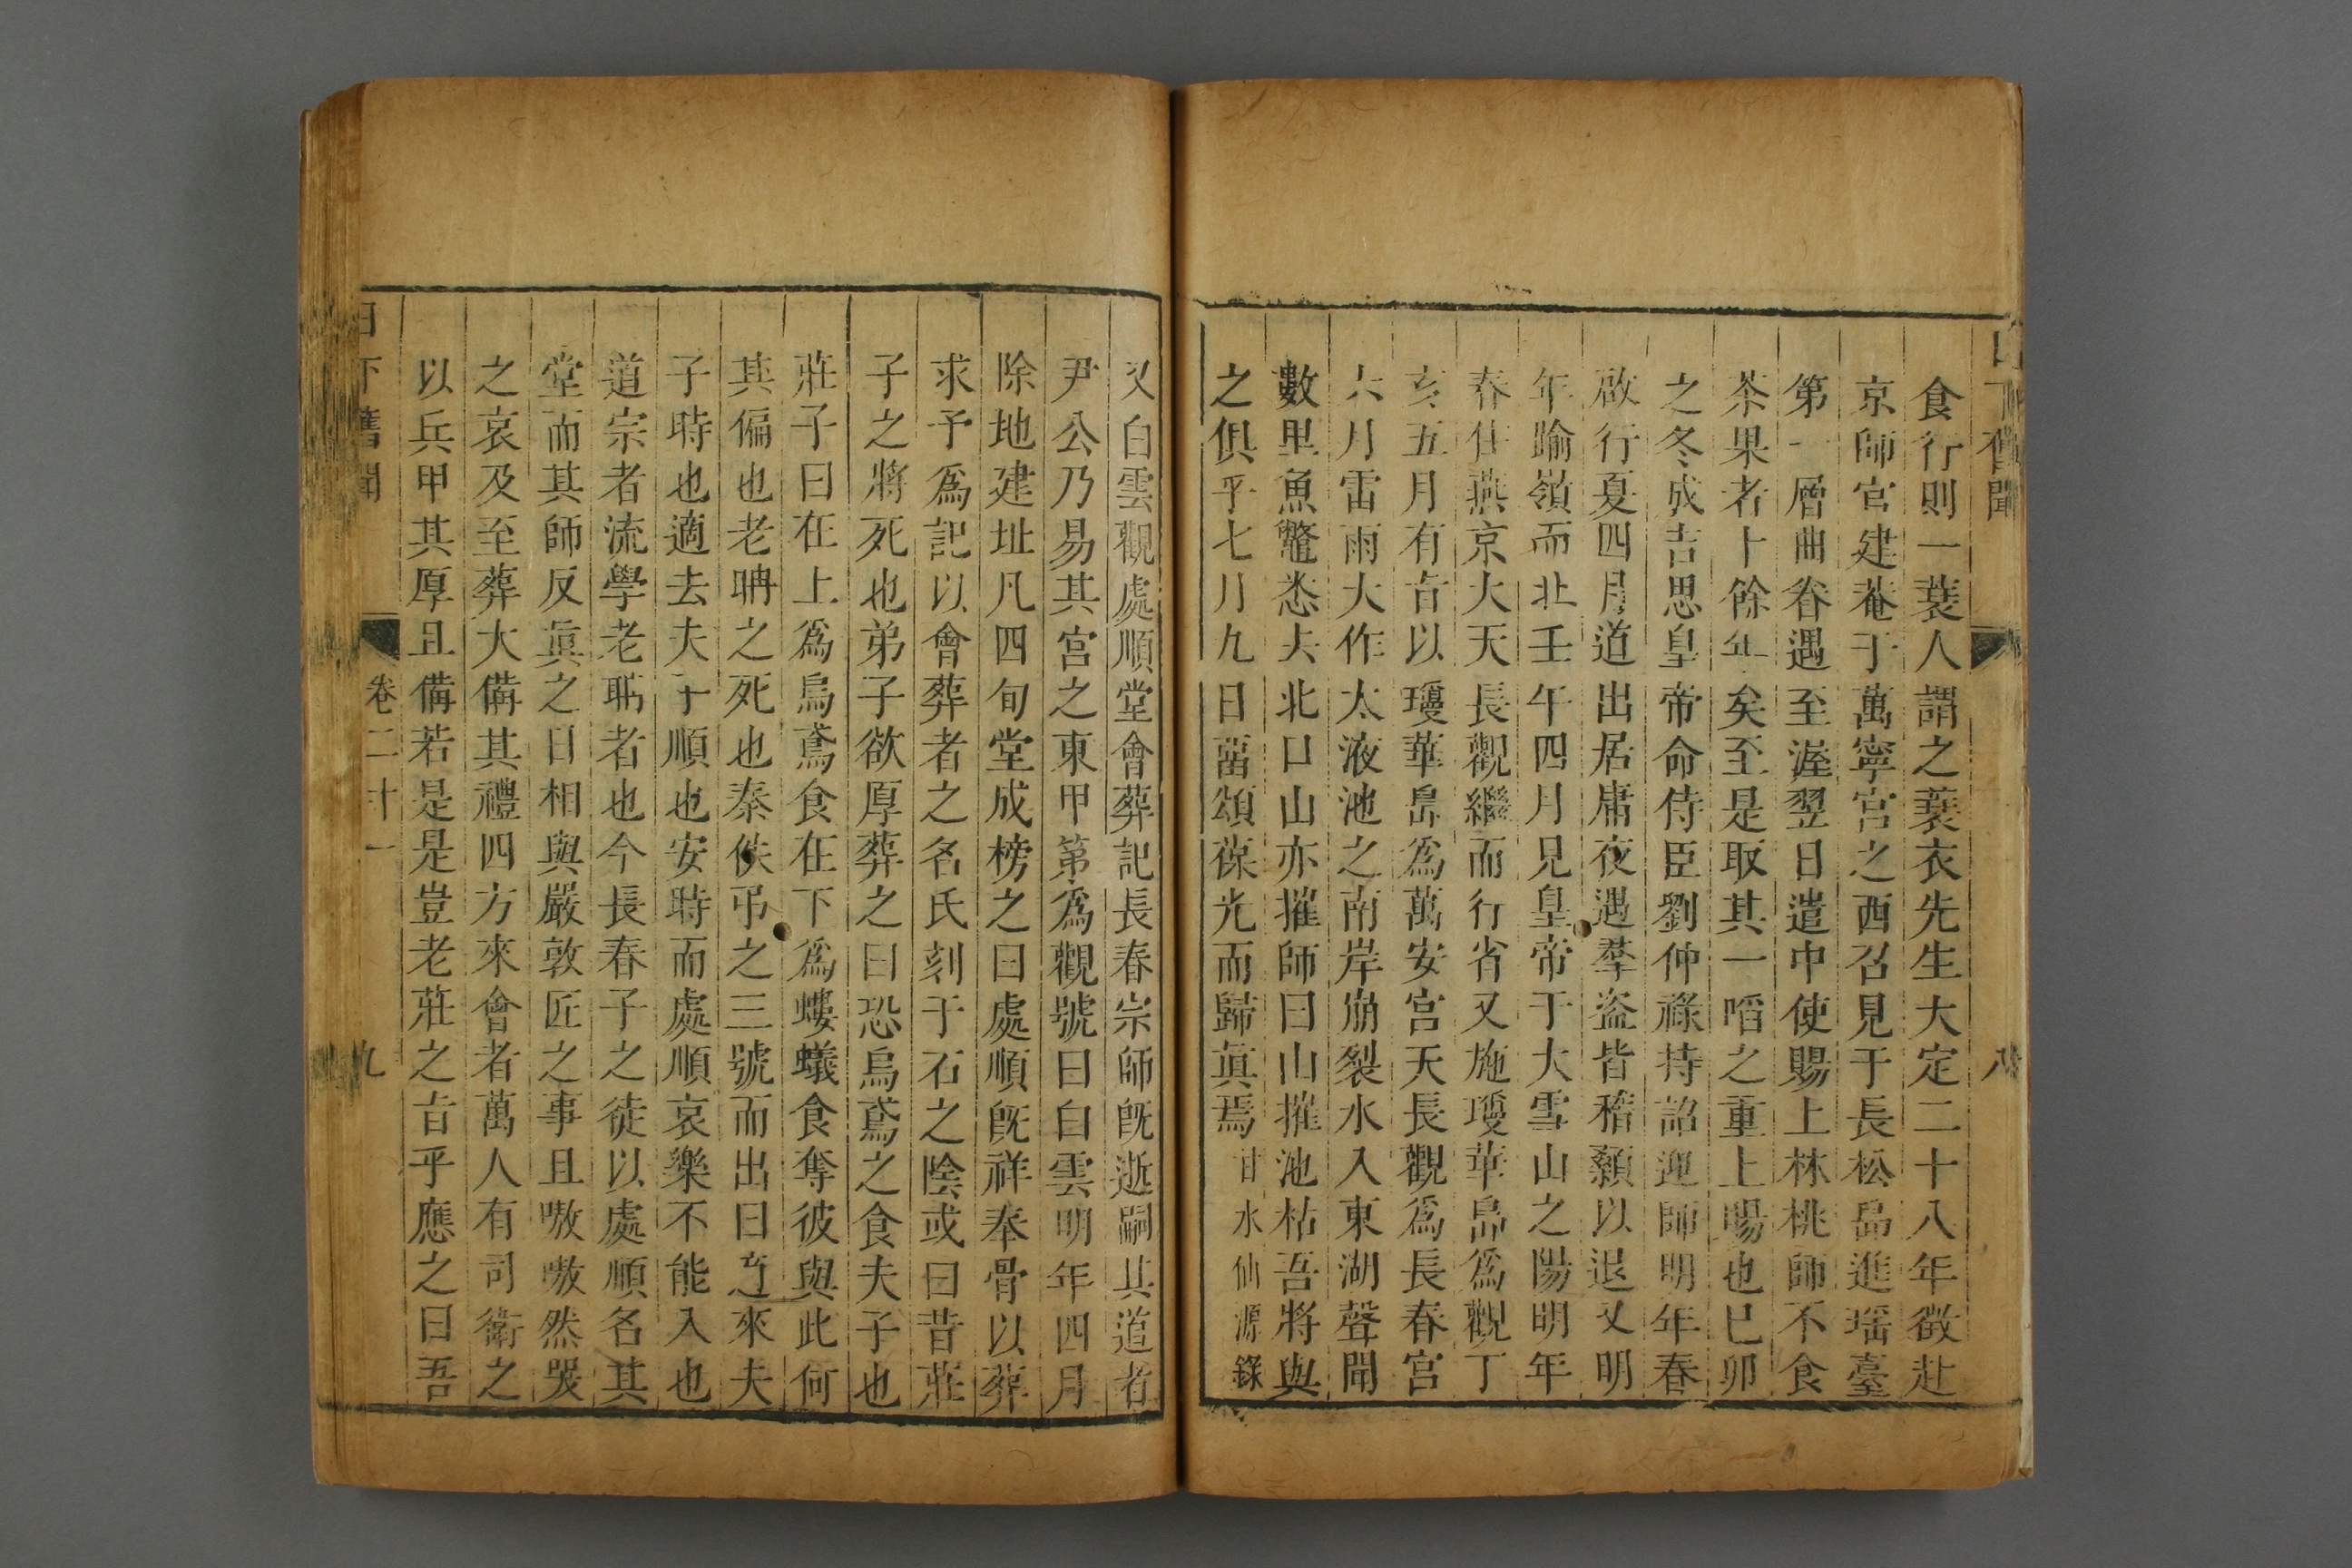 日下舊聞 八
食行則一蓑人謂之蓑衣先生大定二十八年徵赴
京師官建菴于萬寧宮之西召見于長松島進瑶臺
第一層曲眷遇至渥翌日遣中使賜上林桃師不食
茶果者十餘年矣至是取其一啗之重上賜也已卯
之冬成吉思皇帝命侍臣劉仲祿持詔迎師明年春
啟行夏四月道出居庸夜遇羣盗皆稽顙以退又明
年踰嶺而北壬午四月見皇帝于大雪山之陽明年
春住燕京大天長觀繼而行省又施瓊華島爲觀丁
亥五月有㫖以瓊華島爲萬安宮天長觀爲長春宮
六月雷雨大作太液池之南岸崩裂水入東湖聲聞
數里魚鼈悉去北口山亦摧師曰山摧池枯吾將與
之俱乎七月九日畱頌葆光而歸眞焉甘水仙源錄
又白雲觀處順堂會葬記長春宗師旣逝嗣其道者
尹公乃易其宮之東甲第爲觀號曰白雲明年四月
除地建址凡四旬堂成榜之曰處順旣祥奉骨以葬
求予爲記以會葬者之名氏刻于石之陰或曰昔莊
子之將死也弟子欲厚葬之曰恐烏鳶之食夫子也
莊子曰在上爲烏鳶食在下爲螻蟻食奪彼與此何
其偏也老聃之死也秦佚弔之三號而出曰適來夫
子時也適去夫子順也安時而處順哀樂不能入也
道宗者流學老聃者也今長春子之徒以處順名其
堂而其師反眞之日相與嚴敦匠之事且嗷嗷然哭
之哀及至葬大備其禮四方來會者萬人有司衛之
以兵甲其厚且備若是是豈老莊之㫖乎應之曰吾
日下舊聞 卷二十一 九